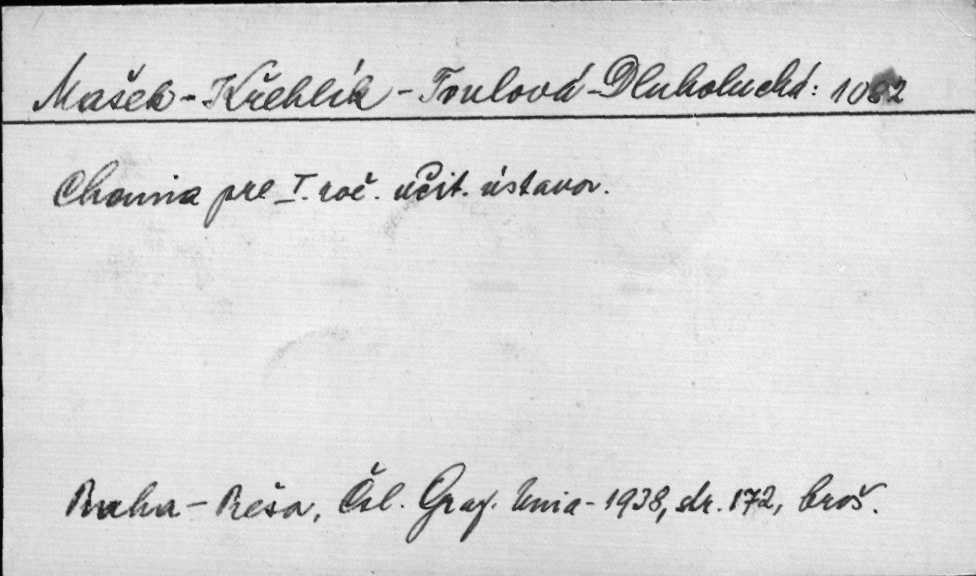 Mašek - Křehlík - Toulová - Dluholucká: 1082
Chemia pre I. roč. učit. ústavov.
Praha - Preša, Čsl. Graf. Unia - 1938, str. 172, brož.